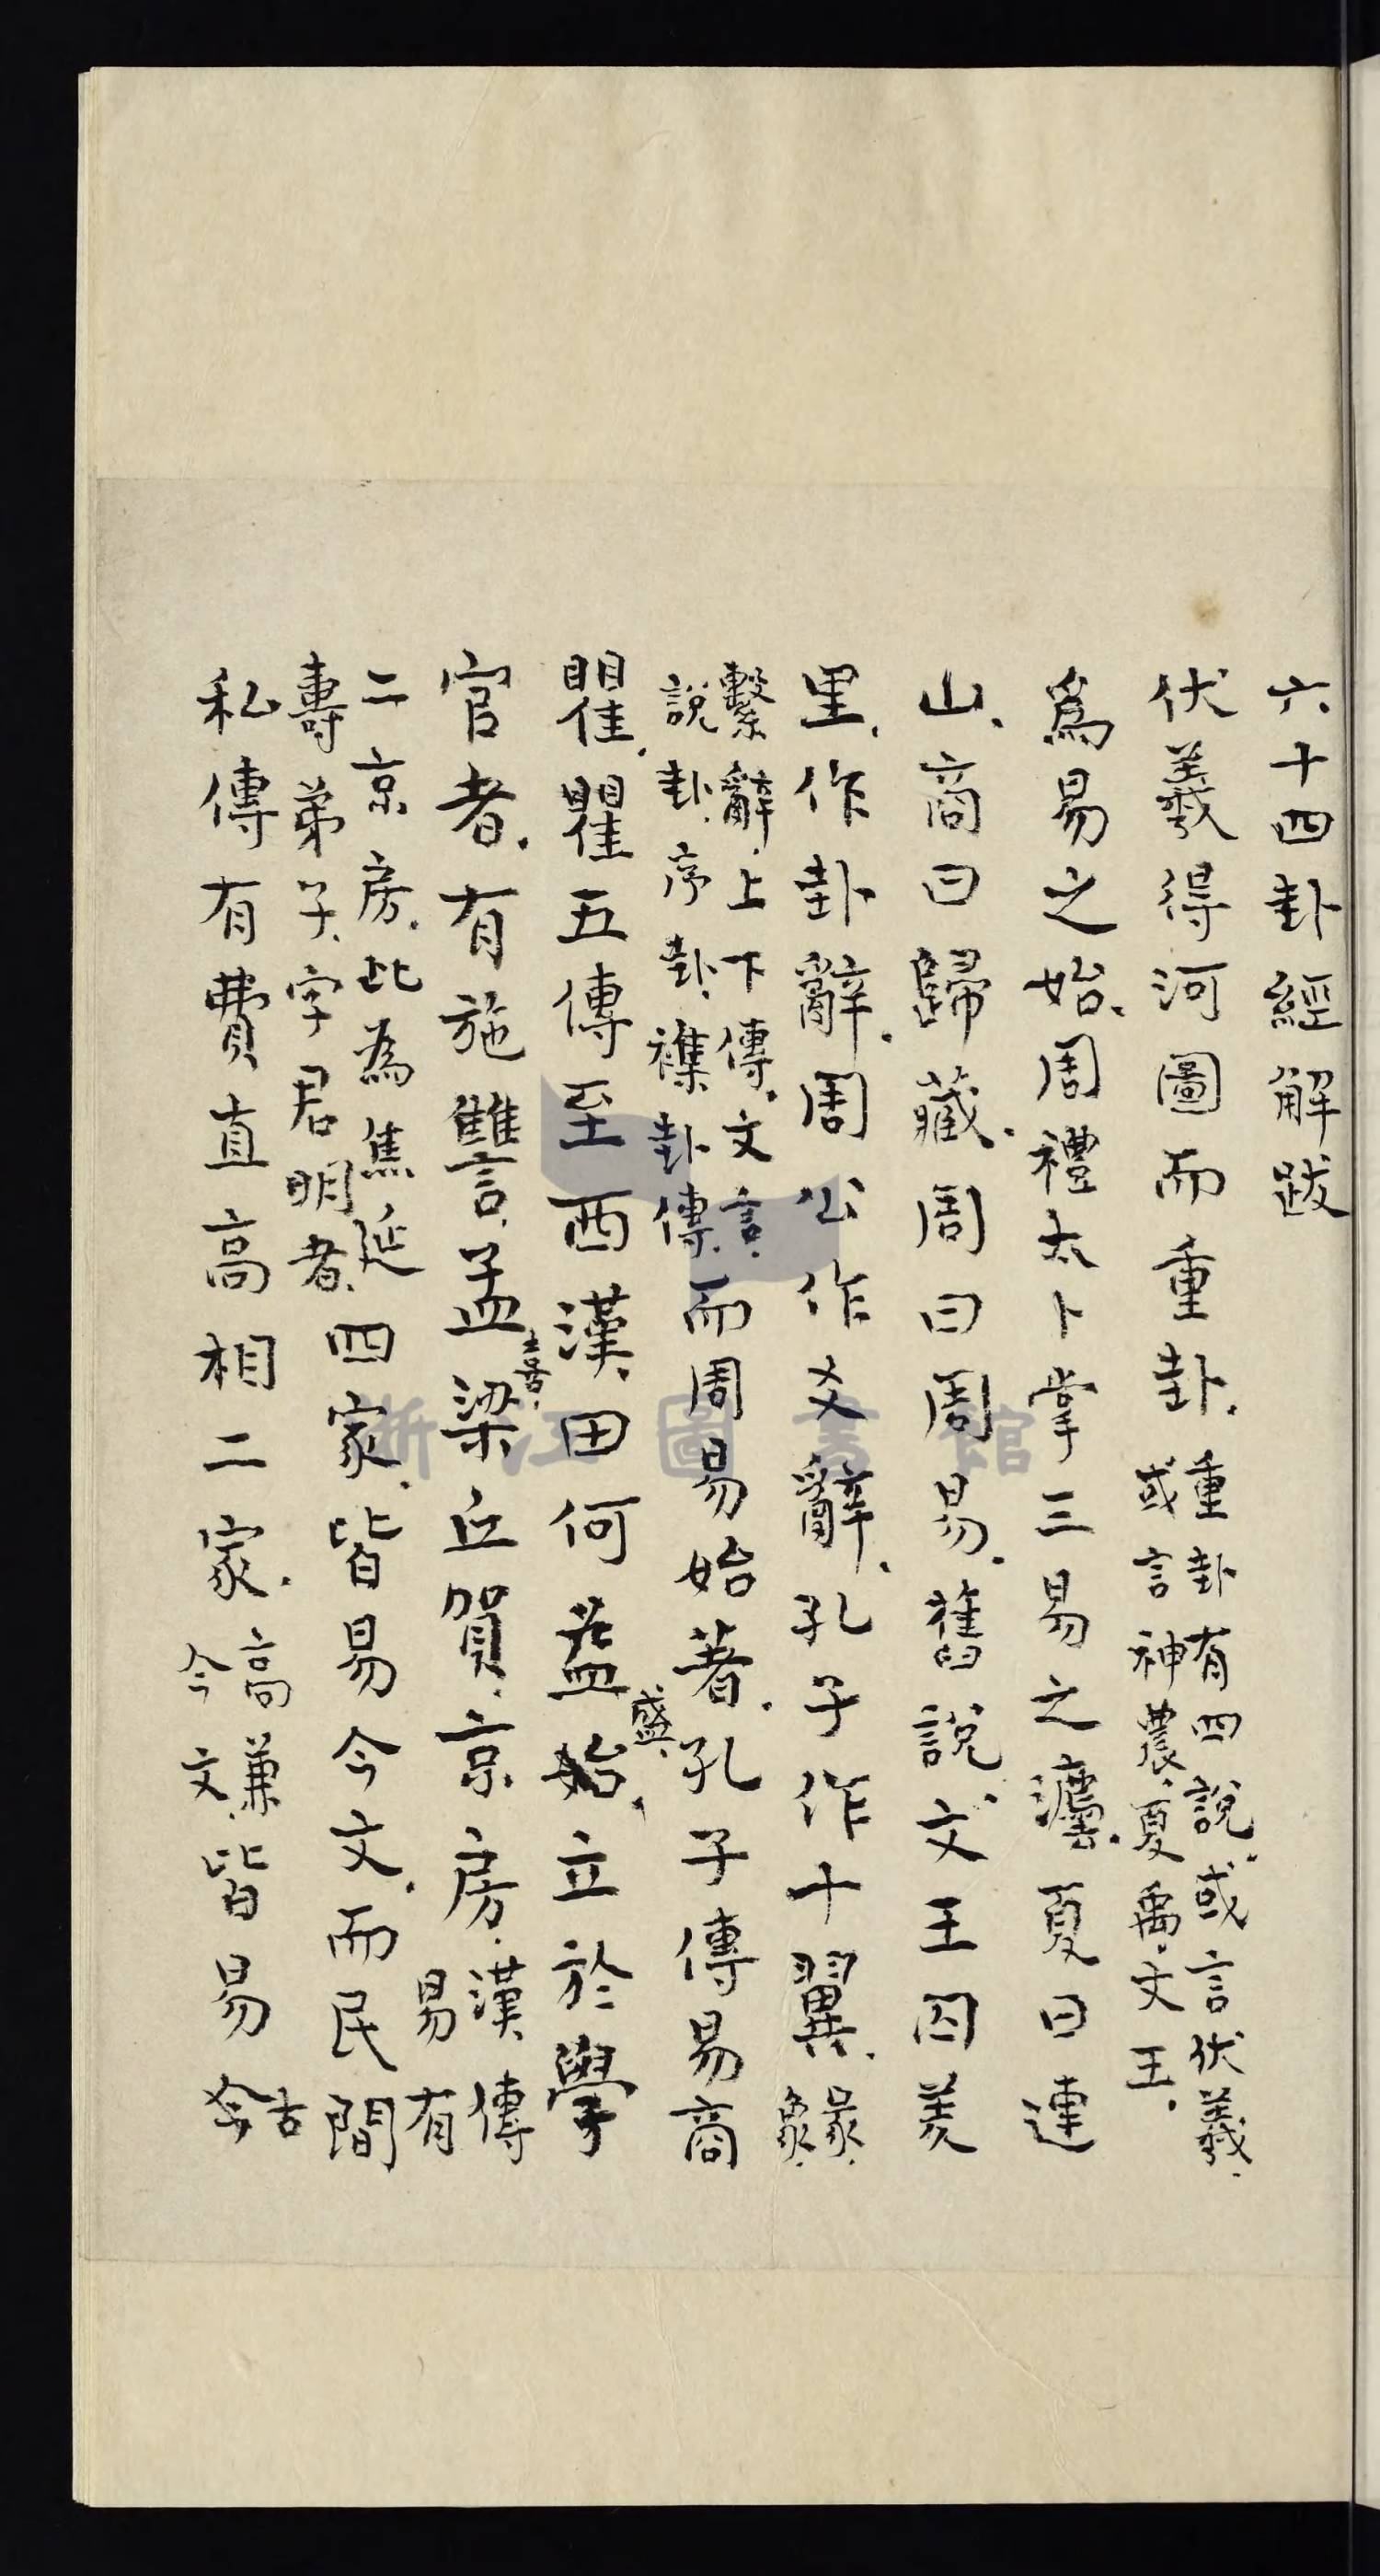 六十四卦經解跋
伏羲得河圖而重卦.重卦有四說.或言伏羲.或言神農.夏禹.文王.
爲易之始.周禮太卜掌三易之灋.夏曰連
山.商曰歸藏.周曰周易.舊說.文王囚羑
里.作卦辭.周公作爻辭.孔子作十翼.彖.象.
繫辭.上下傳.文言.說卦.序卦.襍卦傳.而周易始著.孔子傳易商
瞿.瞿五傳至西漢.田何益盛.始立於學
官者.有施讐.孟喜.梁丘賀.京房.漢傳易有
二京房.此為焦延壽弟子.字君明者.四家.皆易今文.而民間
私傳有費直高相二家.高兼今文.皆易古
浙江圖書館